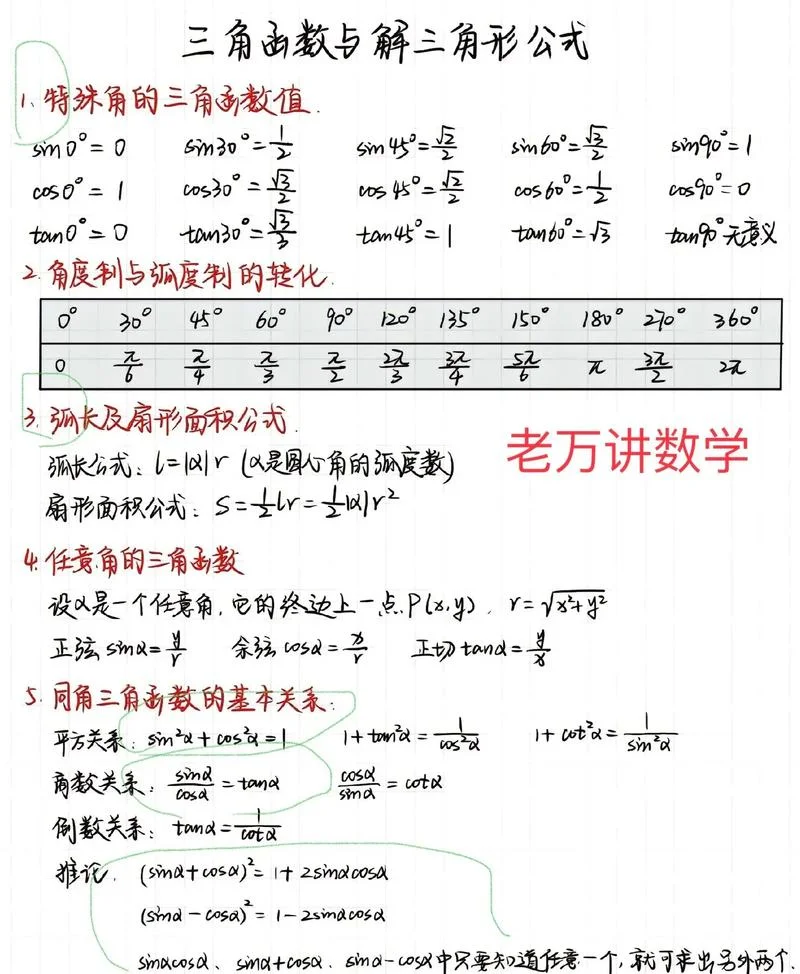 三角函数与解三角形公式
1. 特殊角的三角函数值.
sin0°=0 sin30°=1/2 sin45°=√2/2 sin60°=√3/2 sin90°=1
cos0°=1 cos30°=√3/2 cos45°=√2/2 cos60°=1/2 cos90°=0
tan0°=0 tan30°=√3/3 tan45°=1 tan60°=√3 tan90°无意义
2. 角度制与弧度制的转化.
0° 30° 45° 60° 90° 120° 135° 150° 180° 270° 360°
0 π/6 π/4 π/3 π/2 2π/3 3π/4 5π/6 π 3π/2 2π
3. 弧长及扇形面积公式.
老万讲数学
弧长公式: l=|α|r (α是圆心角的弧度数)
扇形面积公式: S=1/2lr=1/2|α|r²
4. 任意角的三角函数
设α是一个任意角,它的终边上一点P(x,y), r=√(x²+y²)
正弦sinα=y/r 余弦cosα=x/r 正切tanα=y/x
5. 同角三角函数的基本关系:
平方关系: sin²α+cos²α=1 1+tan²α=1/cos²α 1+cot²α=1/sin²α
商数关系: sinα/cosα=tanα cosα/sinα=cotα
倒数关系: tanα=1/cotα
推论. (sinα+cosα)²=1+2sinαcosα
(sinα-cosα)²=1-2sinαcosα
sinαcosα、sinα+cosα、sinα-cosα中只要知道任意一个,就可求出另外两个.